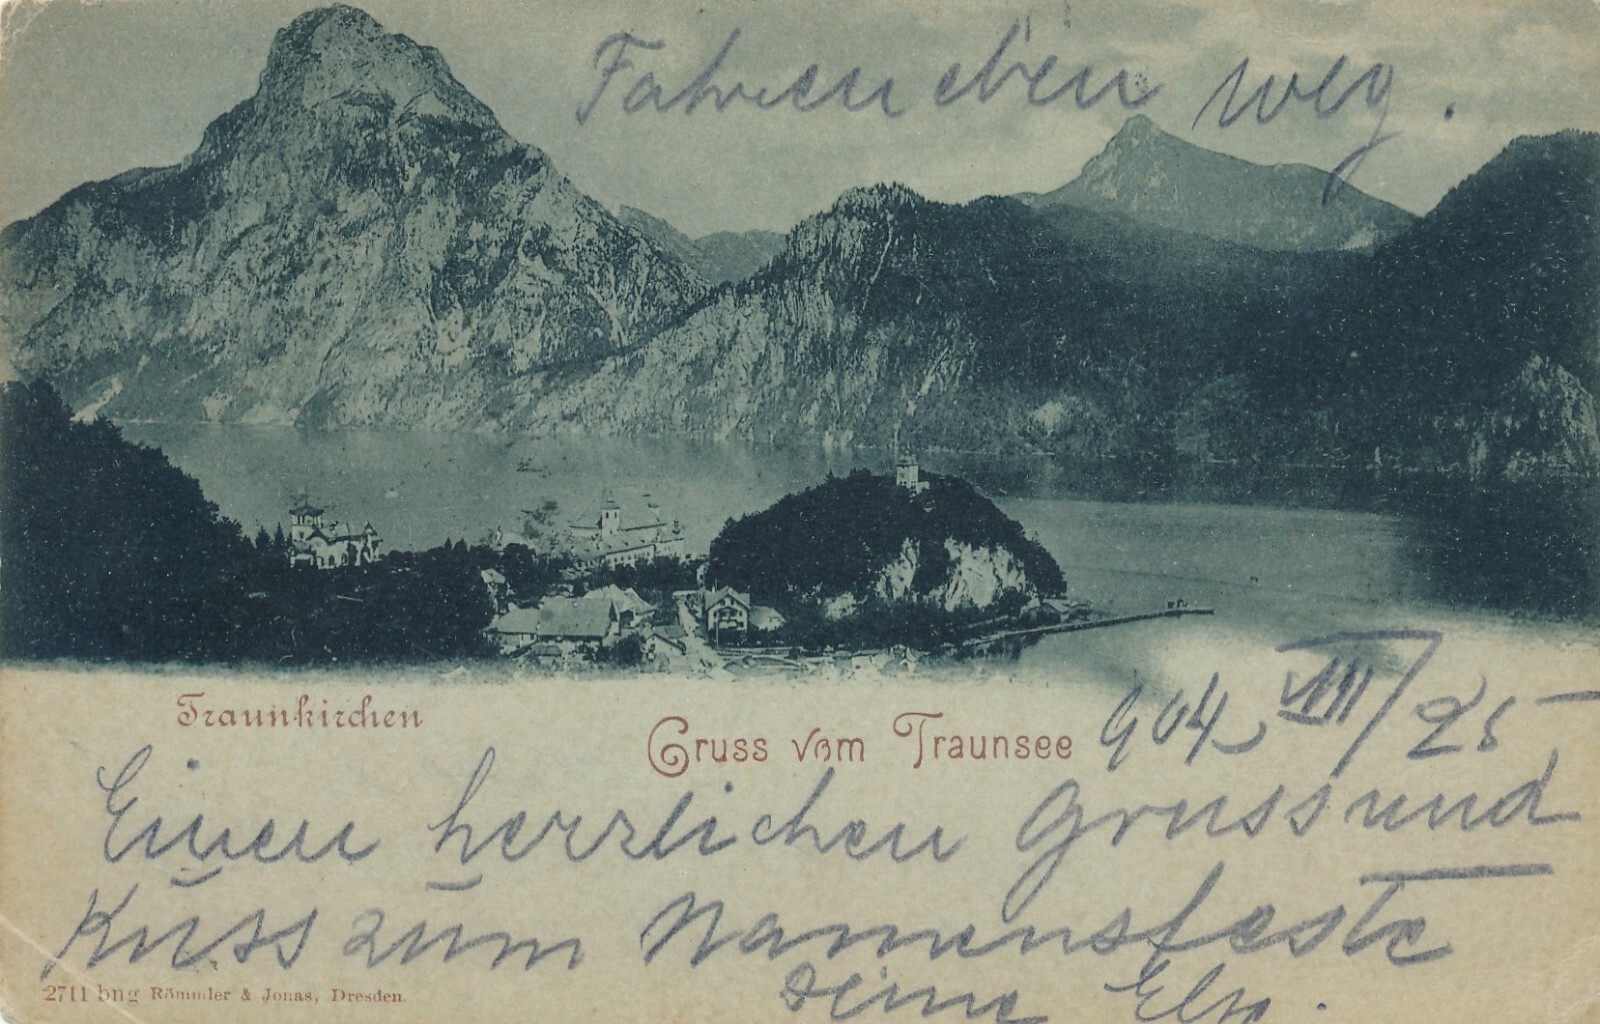 Fahren eben weg.
Traunkirchen
Gruss vom Traunsee 904 VIII/25
Einen herzlichen Gruss und
Kuss zum Namensfeste
Deine Else.
2711 bng Römmler & Jonas, Dresden.